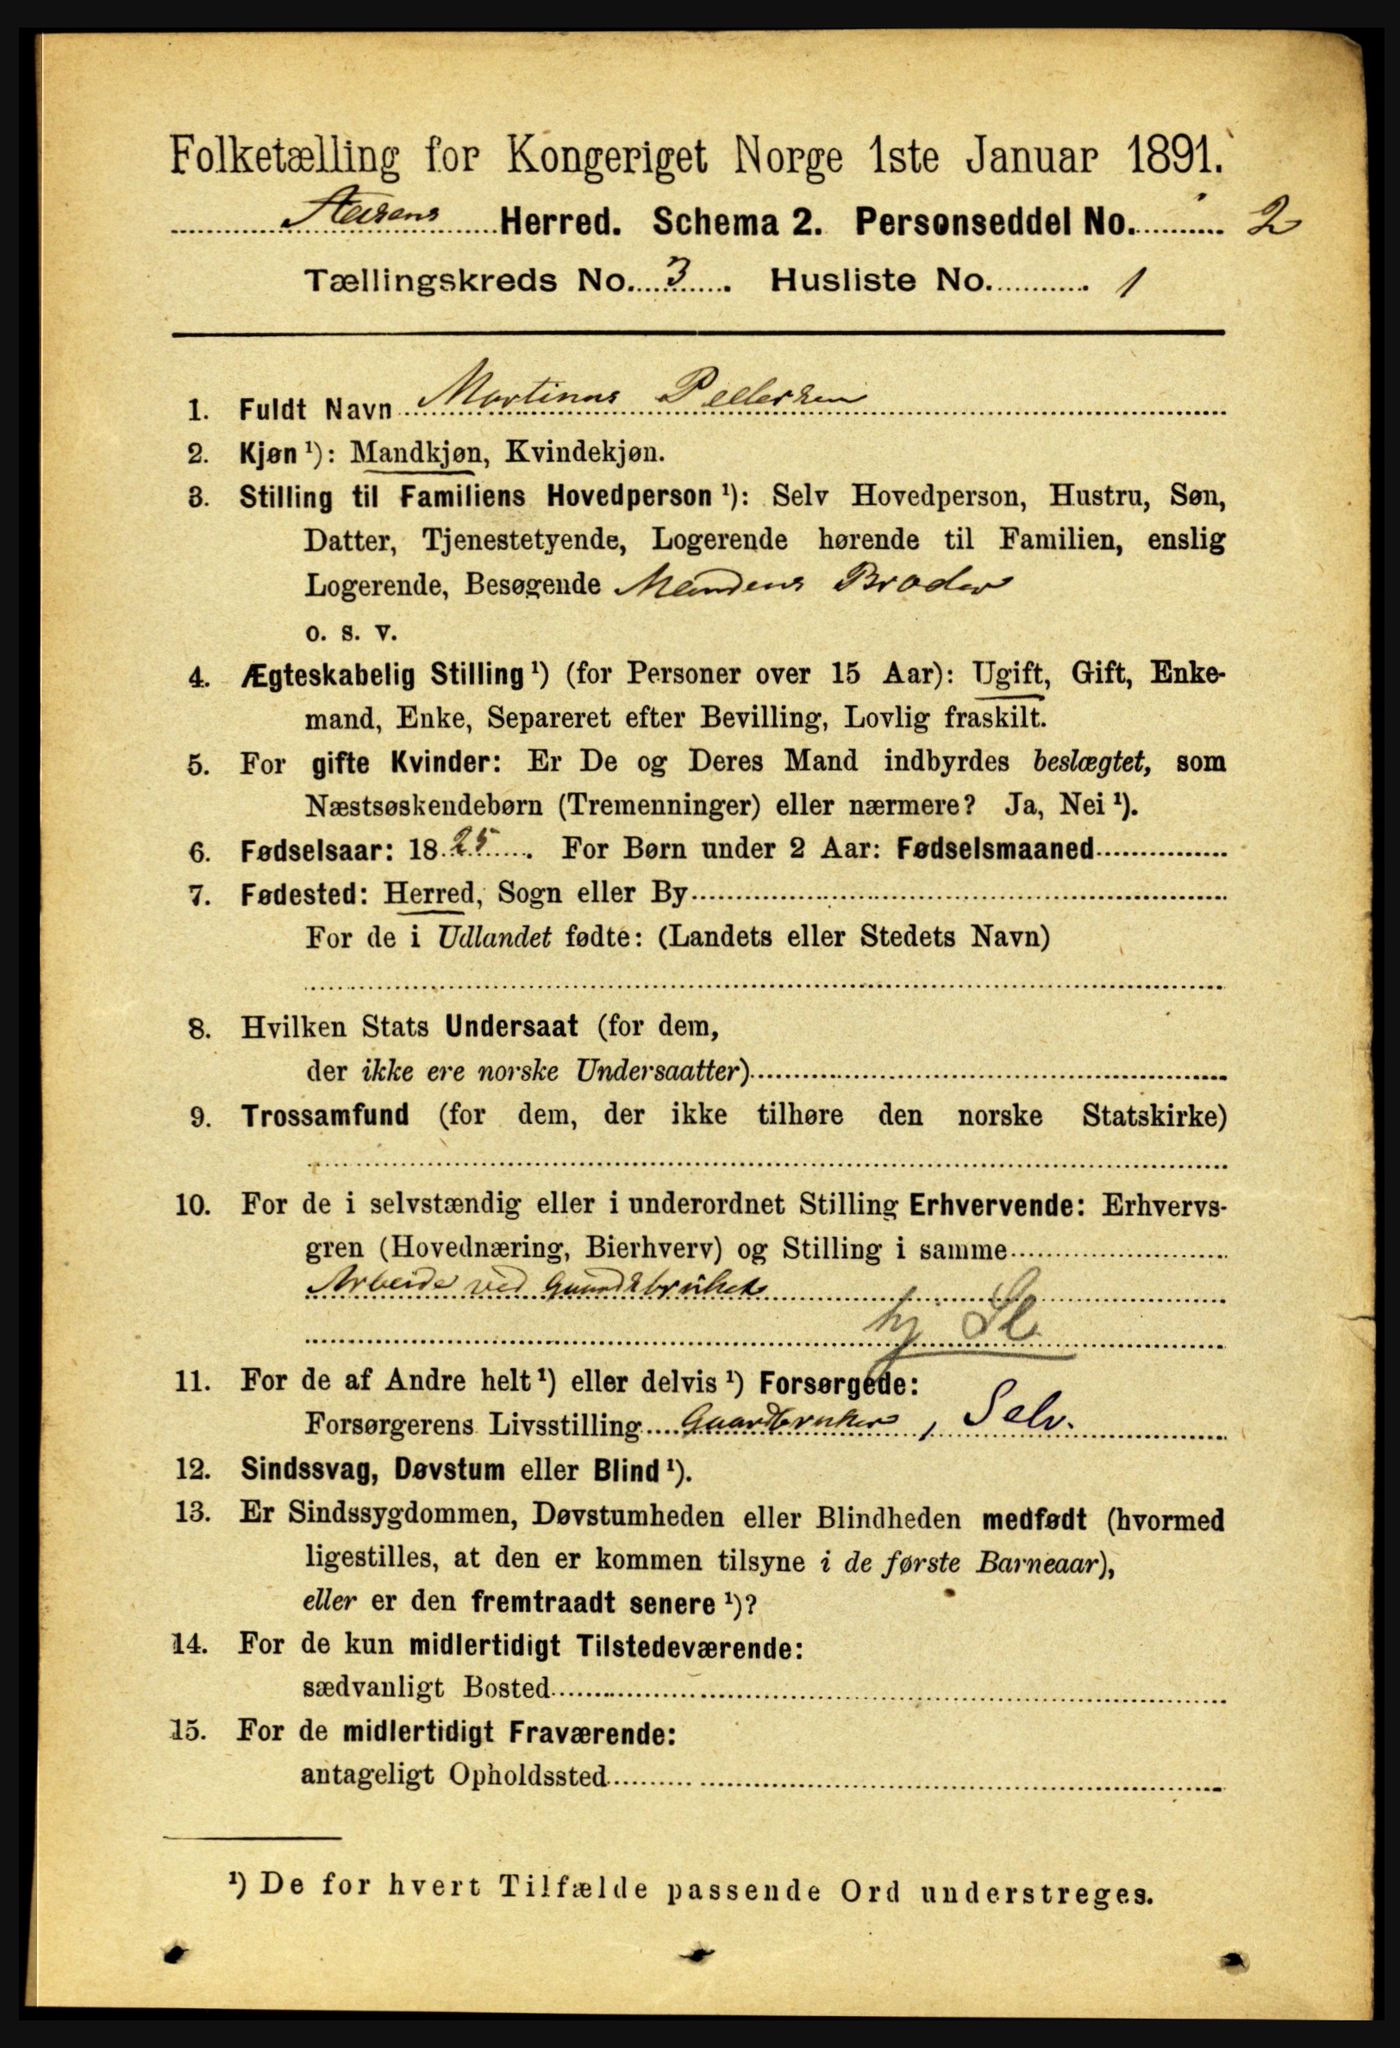 Folketælling for Kongeriget Norge 1ste Januar 1891.
Herred. Schema 2. Personseddel No. 2
Tællingskreds No. 3. Husliste No. 1
1. Fuldt Navn Martinus Pedersen
2. Kjøn ¹): Mandkjøn, Kvindekjøn.
3. Stilling til Familiens Hovedperson ¹): Selv Hovedperson, Hustru, Søn,
Datter, Tjenestetyende, Logerende hørende til Familien, enslig
Logerende, Besøgende Mandens Broder
o. s. v.
4. Ægteskabelig Stilling ¹) (for Personer over 15 Aar): Ugift, Gift, Enke-
mand, Enke, Separeret efter Bevilling, Lovlig fraskilt.
5. For gifte Kvinder: Er De og Deres Mand indbyrdes beslægtet, som
Næstsøskendebørn (Tremenninger) eller nærmere? Ja, Nei ¹).
6. Fødselsaar: 1825. For Børn under 2 Aar: Fødselsmaaned
7. Fødested: Herred, Sogn eller By
For de i Udlandet fødte: (Landets eller Stedets Navn)
8. Hvilken Stats Undersaat (for dem,
der ikke ere norske Undersaatter)
9. Trossamfund (for dem, der ikke tilhøre den norske Statskirke)
10. For de i selvstændig eller i underordnet Stilling Erhvervende: Erhvervs-
gren (Hovednæring, Bierhverv) og Stilling i samme
Arbeide ved Gaardsbruket
hj Sl
11. For de af Andre helt ¹) eller delvis ¹) Forsørgede:
Forsørgerens Livsstilling Gaardbruker, Selv.
12. Sindssvag, Døvstum eller Blind ¹).
13. Er Sindssygdommen, Døvstumheden eller Blindheden medfødt (hvormed
ligestilles, at den er kommen tilsyne i de første Barneaar),
eller er den fremtraadt senere ¹)?
14. For de kun midlertidigt Tilstedeværende:
sædvanligt Bosted
15. For de midlertidigt Fraværende:
antageligt Opholdssted
¹) De for hvert Tilfælde passende Ord understreges.